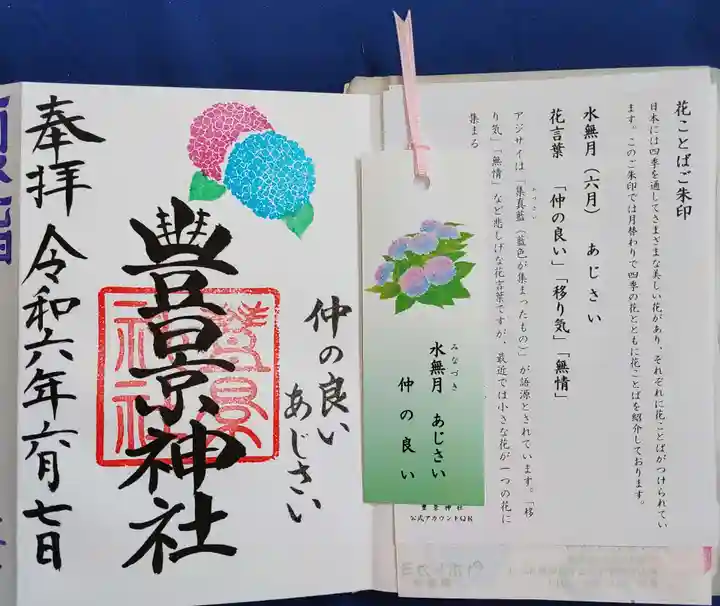 花ことばご朱印
日本には四季を通してさまざまな美しい花があり、それぞれに花ことばがつけられてい
ます。このご朱印では月替わりで四季の花とともに花ことばを紹介しております。
水無月（六月）　あじさい
花言葉　「仲の良い」「移り気」「無情」
アジサイは「集真藍（藍色が集まったもの）」が語源とされています。「移
り気」「無情」など悲しげな花言葉ですが、最近では小さな花が一つの花に
集まる
水無月　あじさい
みなづき
仲の良い
豊景神社
公式アカウントQR
仲の良い
あじさい
豊景神社
奉拝　令和六年六月七日